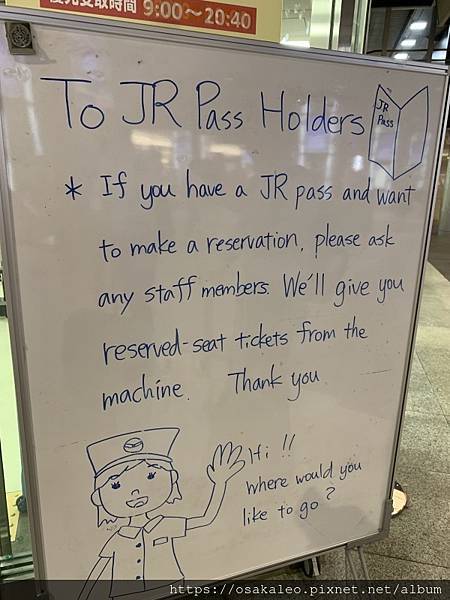 受取時間 9:00～20:40
To JR Pass Holders
JR
Pass
* If you have a JR pass and want
to make a reservation, please ask
any staff members. We'll give you
reserved-seat tickets from the
machine. Thank you.
Hi !!
where would you
like to go ?
https://osakaleo.pixnet.net/album